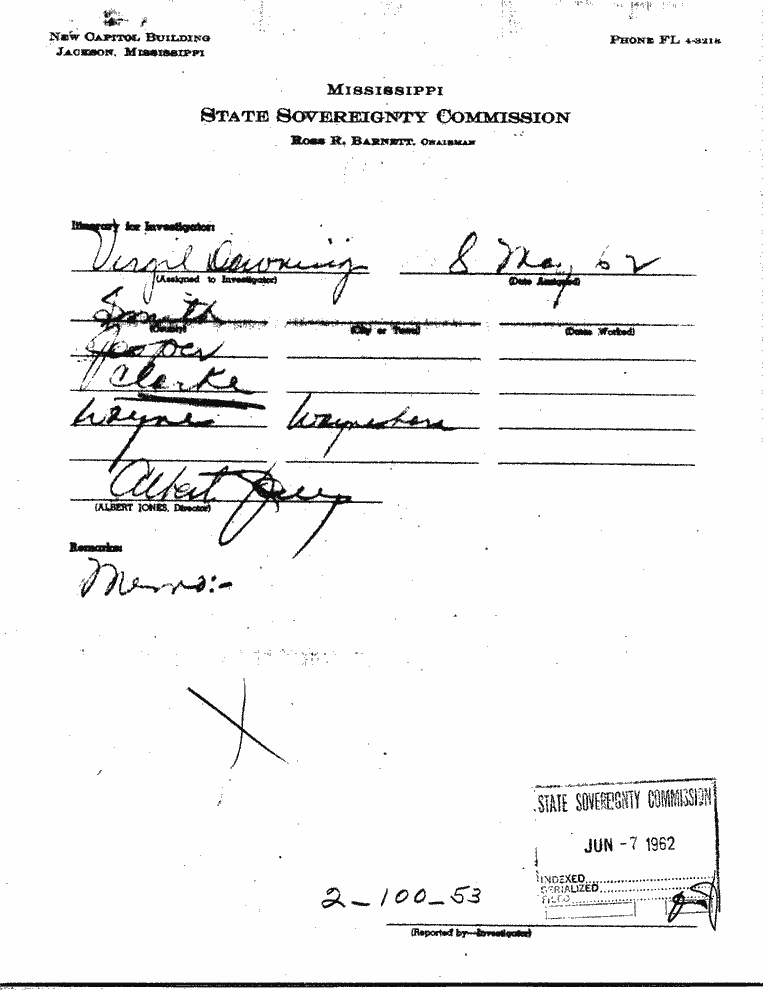 NEW CAPITOL BUILDING
JACKSON, MISSISSIPPI
PHONE FL 4-3218
MISSISSIPPI
STATE SOVEREIGNTY COMMISSION
ROSS R. BARNETT, CHAIRMAN
Itinerary for Investigator:
Virgil Downing 8 May 62
(Assigned to Investigator) (Date Assigned)
Smith
(County) (City or Town) (Dates Worked)
Jasper
Clarke
Wayne Waynesboro
Albert Jones
(ALBERT JONES, Director)
Remarks:
Memo:-
STATE SOVEREIGNTY COMMISSION
JUN -7 1962
INDEXED
SERIALIZED
FILED
2-100-53
(Reported by—Investigator)